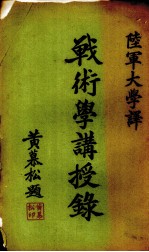 陸軍大學譯
戰術學講授錄
黃慕松題